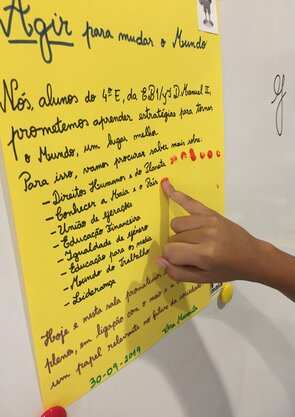 Agir para mudar o Mundo
Nós, alunos do 4º E, da EB1/JI D. Manuel II,
prometemos aprender estratégias para tornar
o Mundo, um lugar melhor.
Para isso, vamos procurar saber mais sobre:
- Direitos Humanos e do Planeta
- Conhecer a Maia e o País
- União de Gerações
- Educação Financeira
- Igualdade de género
- Educação para os media
- Mundo do Trabalho
- Liderança
Hoje e nesta sala prometemos
plano, em ligação com o meio a
um papel relevante no futuro da sociedade
30-09-2019